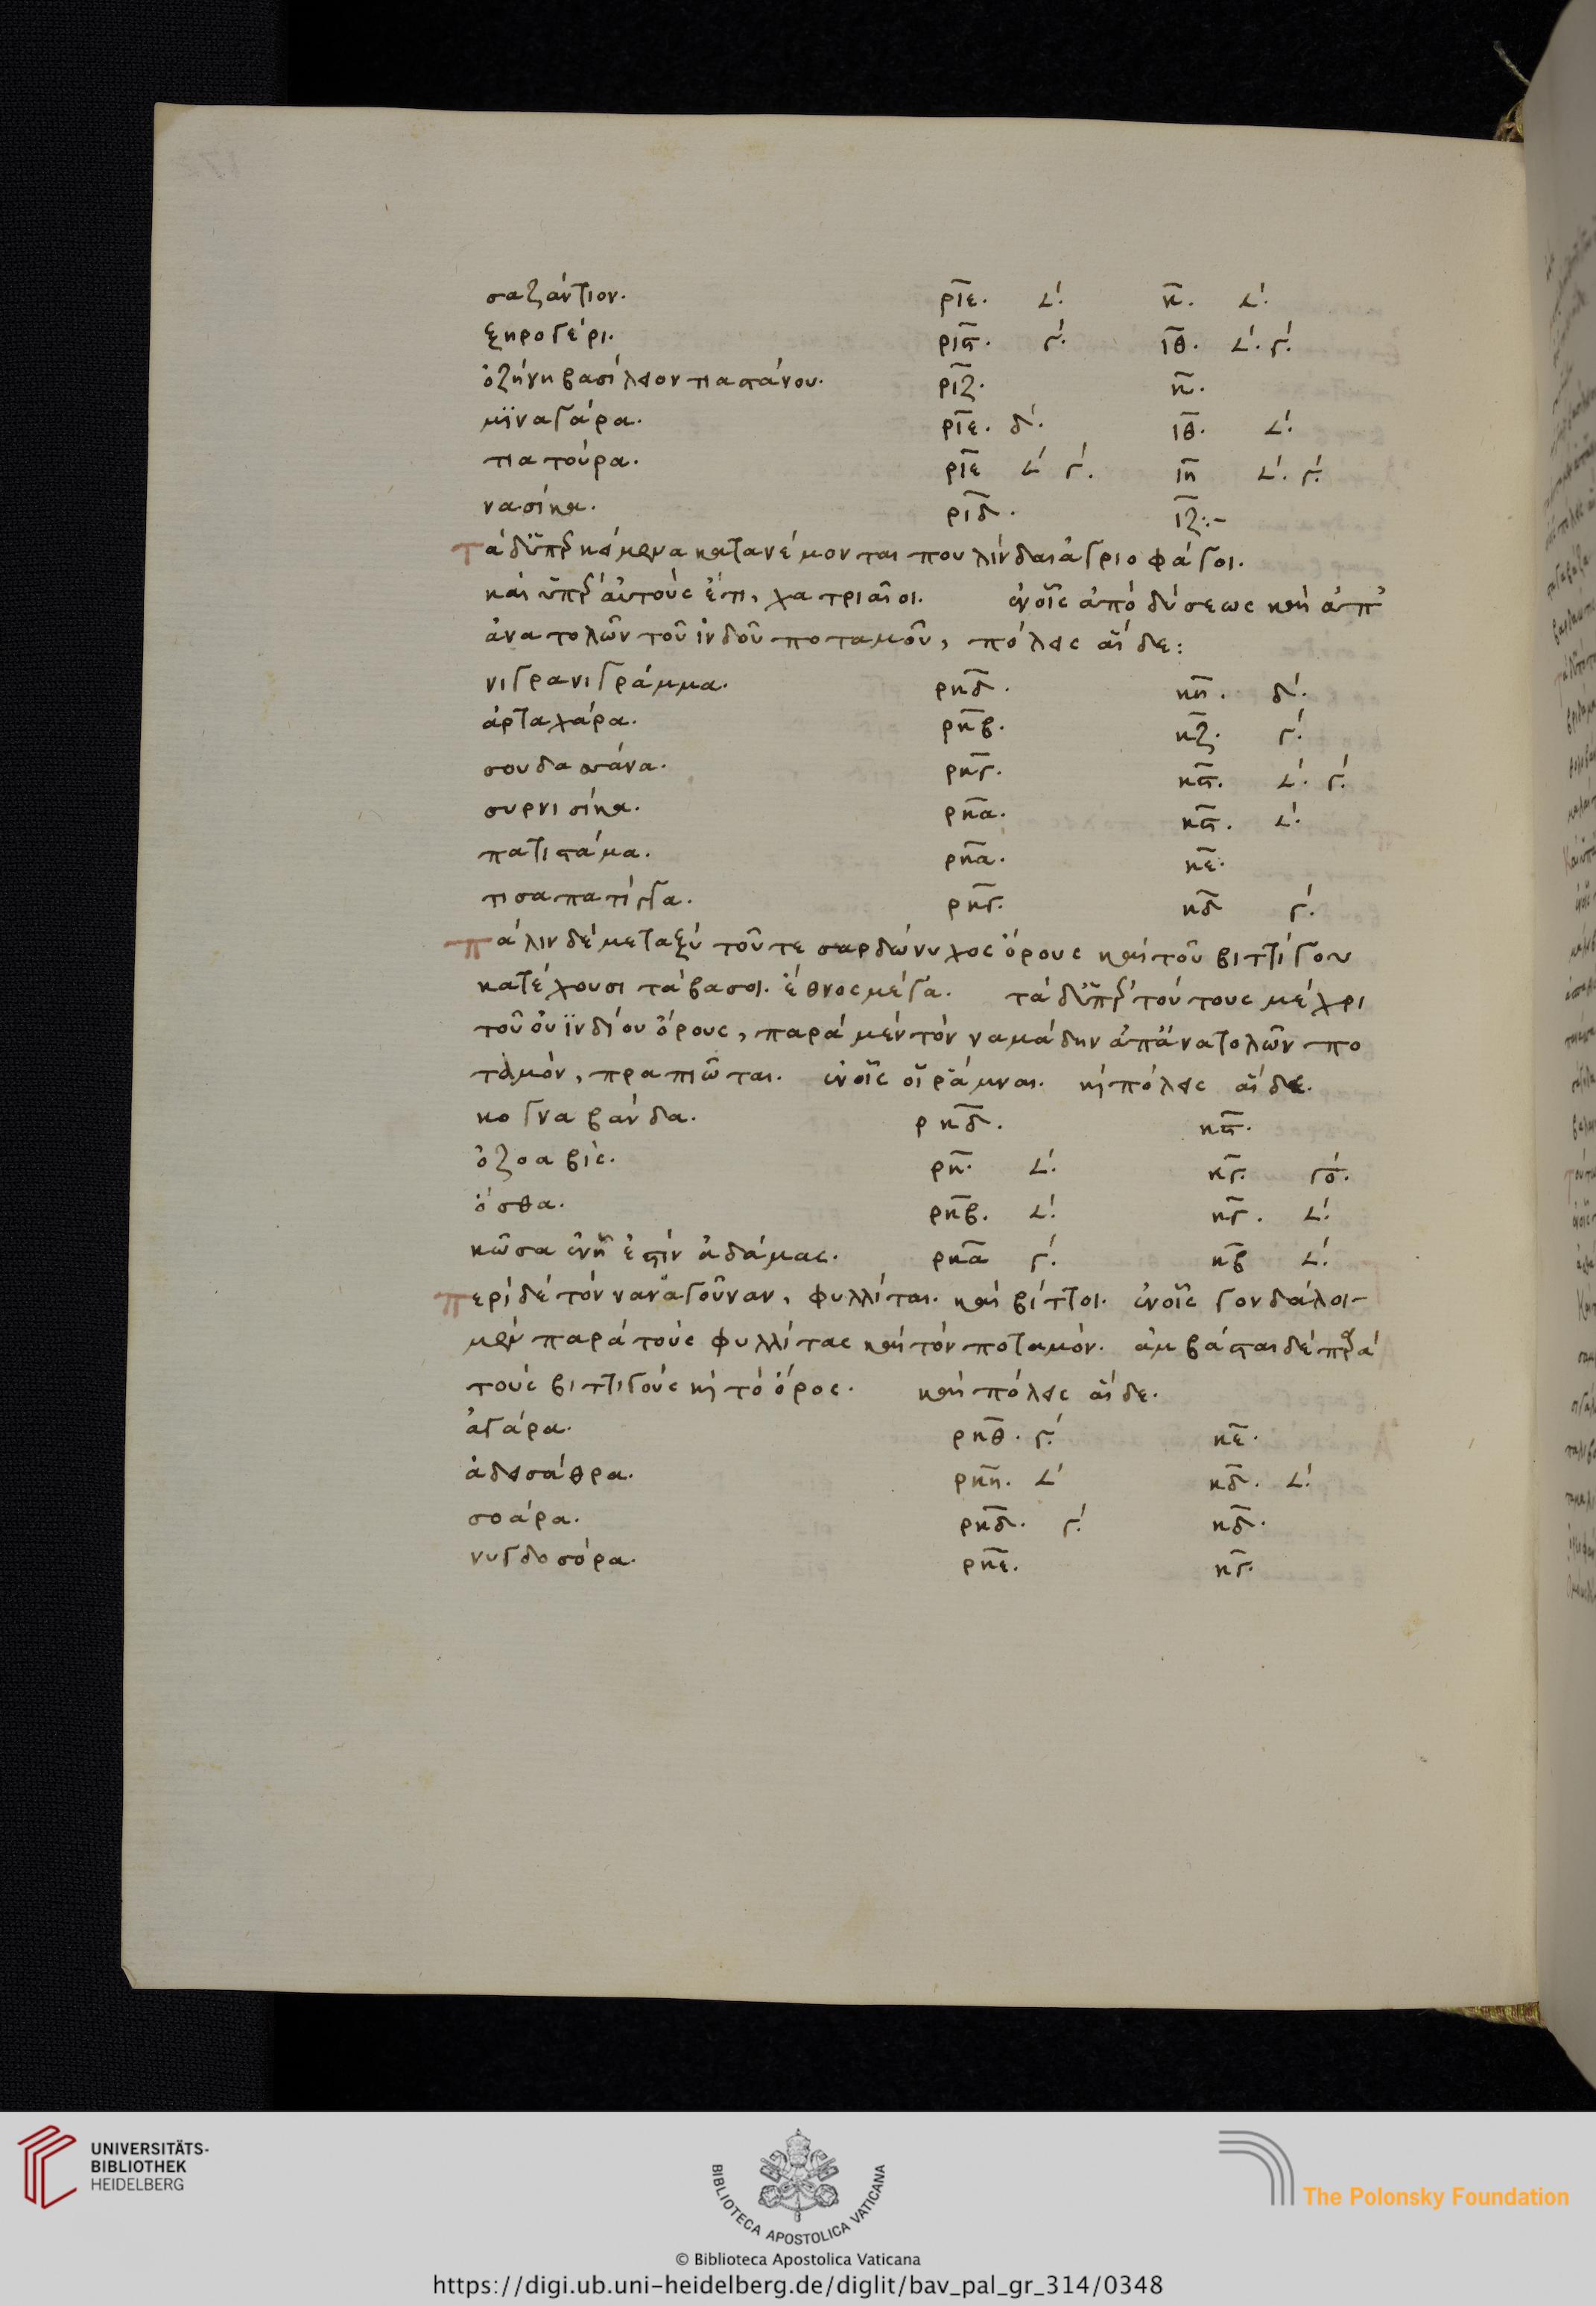 σαζάντιον. ριε. 𐅵΄. κ. 𐅵΄.
ξηρογέρι. ριϛ. γ΄. ιθ. 𐅵΄. γ΄.
ὀζήνη βασίλειον τιαστάνου. ριζ. κ.
μϊναγάρα. ριε. δ΄. ιθ. 𐅵΄.
τιατούρα. ριε 𐅵΄ γ΄. ιη 𐅵΄. γ΄.
νασίκα. ριδ. ιζ:-
τὰ δ' ὑπὲρ κείμενα κατανέμονται πουλίνδαι ἀγριοφάγοι.
καὶ ὑπὲρ αὐτοὺς ἔτι, χατριαῖοι. ἐν οἷς ἀπὸ δύσεως καὶ ἀπ'
ἀνατολῶν τοῦ ἰνδοῦ ποταμοῦ, πόλεις αἵδε:
νιγρανιγράμμα. ρκδ. κη. δ΄.
ἀρταχάρα. ρκβ. κζ. γ΄.
σουδασάνα. ρκγ. κϛ. 𐅵΄. γ΄.
συρνισίκα. ρκα. κϛ. 𐅵΄.
πατιστάμα. ρκα. κε.
τισαπατίγγα. ρκγ. κδ γ΄.
πάλιν δὲ μεταξὺ τοῦ τε σαρδώνυχος ὄρους καὶ τοῦ βιττίγου
κατέχουσι τάβασοι. ἔθνος μέγα. τὰ δ' ὑπὲρ τούτους μέχρι
τοῦ οὐϊνδίου ὄρους, παρὰ μὲν τὸν ναμάδην ἀπ' ἀνατολῶν πο
ταμὸν, πραπιῶται. ἐν οἷς οἱ ῥάμναι. καὶ πόλεις αἵδε.
κογναβάνδα. ρκδ. κϛ.
ὀζοαβίς. ρκ. 𐅵΄. κγ. γό.
ὄσθα. ρκβ. 𐅵΄. κγ. 𐅵΄.
κῶσα ἐν ᾗ ἐστὶν ἀδάμας. ρκα γ΄. κβ 𐅵΄.
περὶ δὲ τὸν ναναγοῦναν, φυλλίται. καὶ βίττοι. ἐν οἷς γονδάλοι-
μὲν παρὰ τοὺς φυλλίτας καὶ τὸν ποταμόν. ἀμβάσται δὲ παρὰ
τοὺς βιττιγοὺς καὶ τὸ ὄρος. καὶ πόλεις αἵδε.
ἀγάρα. ρκθ. γ΄. κε.
ἀδεισάθρα. ρκη. 𐅵΄ κδ. 𐅵΄.
σοάρα. ρκδ. γ΄. κδ.
νυγδοσόρα. ρκε. κγ.
UNIVERSITÄTS-
BIBLIOTHEK
HEIDELBERG
BIBLIOTECA APOSTOLICA VATICANA
The Polonsky Foundation
© Biblioteca Apostolica Vaticana
https://digi.ub.uni-heidelberg.de/diglit/bav_pal_gr_314/0348